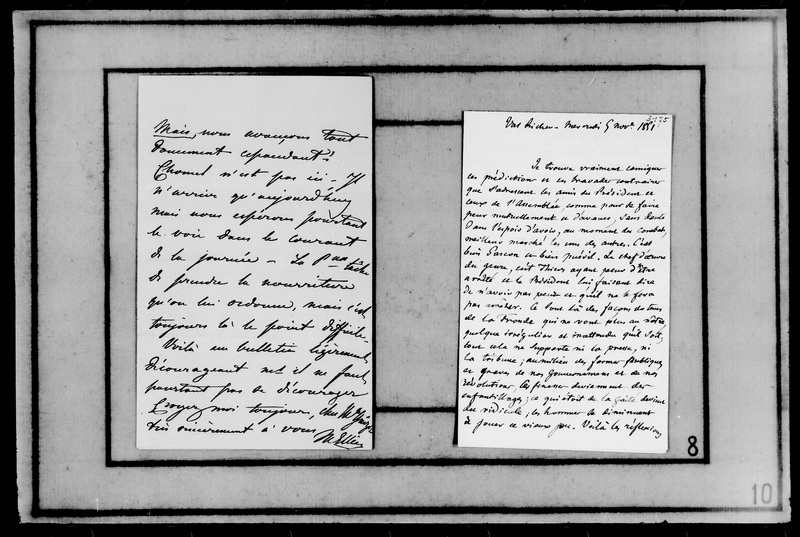 Mais, nous avançons tout
doucement cependant!
Chomel n'est pas ici - Il
n'arrive qu'aujourd'huy
mais nous espérons pourtant
le voir dans le courant
de la journée - La Psse tâche
de prendre la nourriture
qu'on lui ordonne, mais c'est
toujours là le point difficile -
Voilà un bulletin légèrement
décourageant et il ne faut
pourtant pas se décourager
Croyez moi toujours, cher M.
très sincèrement à vous
3175
Val Richer - Mercredi 5 nov. 1851
Je trouve vraiment comique
ces prédictions et ces bravades contraires
que s'adressent les amis du Président et
ceux de l'Assemblée comme pour se faire
peur mutuellement et d'avance, sans doute
dans l'espoir d'avoir, au moment du combat,
meilleur marché les uns des autres. C'est
bien Gascon et bien puéril. Le chef d'œuvre
du genre, c'est Thiers ayant peur d'être
arrêté et le Président lui faisant dire
de n'avoir pas peur et qu'il ne le fera
pas arrêter. Ce sont là des façons de tems
de la Fronde qui ne vont plus au nôtre,
quelque irrégulier et inattendu qu'il soit;
tout cela ne supporte ni la presse, ni
la tribune; au milieu des formes publiques
et graves de nos gouvernemens et de nos
révolutions, les finesses deviennent des
enfantillages; ce qui était de la gaîté devient
du ridicule, les hommes se diminuent
à jouer ce vieux jeu. Voilà les réflexions
8
10